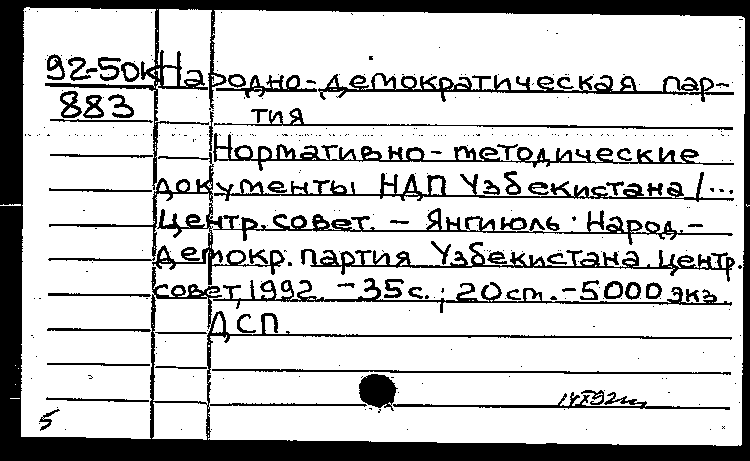 92-50к Народно-демократическая пар-
883 тия
Нормативно-методические
документы НДП Узбекистана /...
Центр. совет. – Янгиюль : Народ.-
демокр. партия Узбекистана. Центр.
совет, 1992. – 35 с. ; 20 см. – 5000 экз.
ДСП.
5